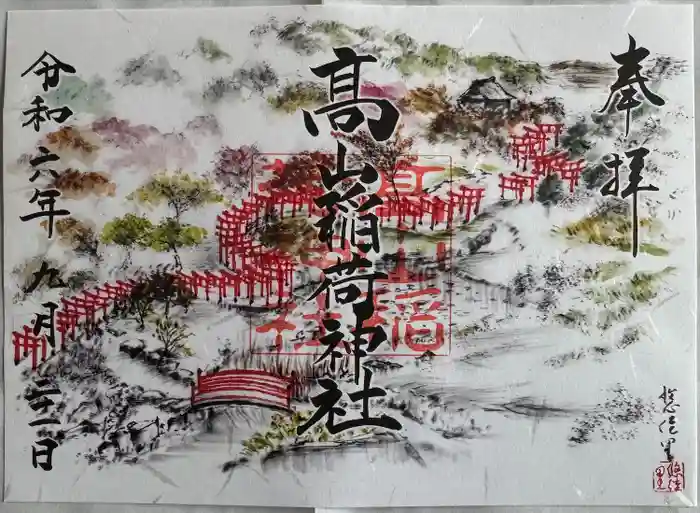 奉拝
髙山稲荷神社
令和六年九月二十二日